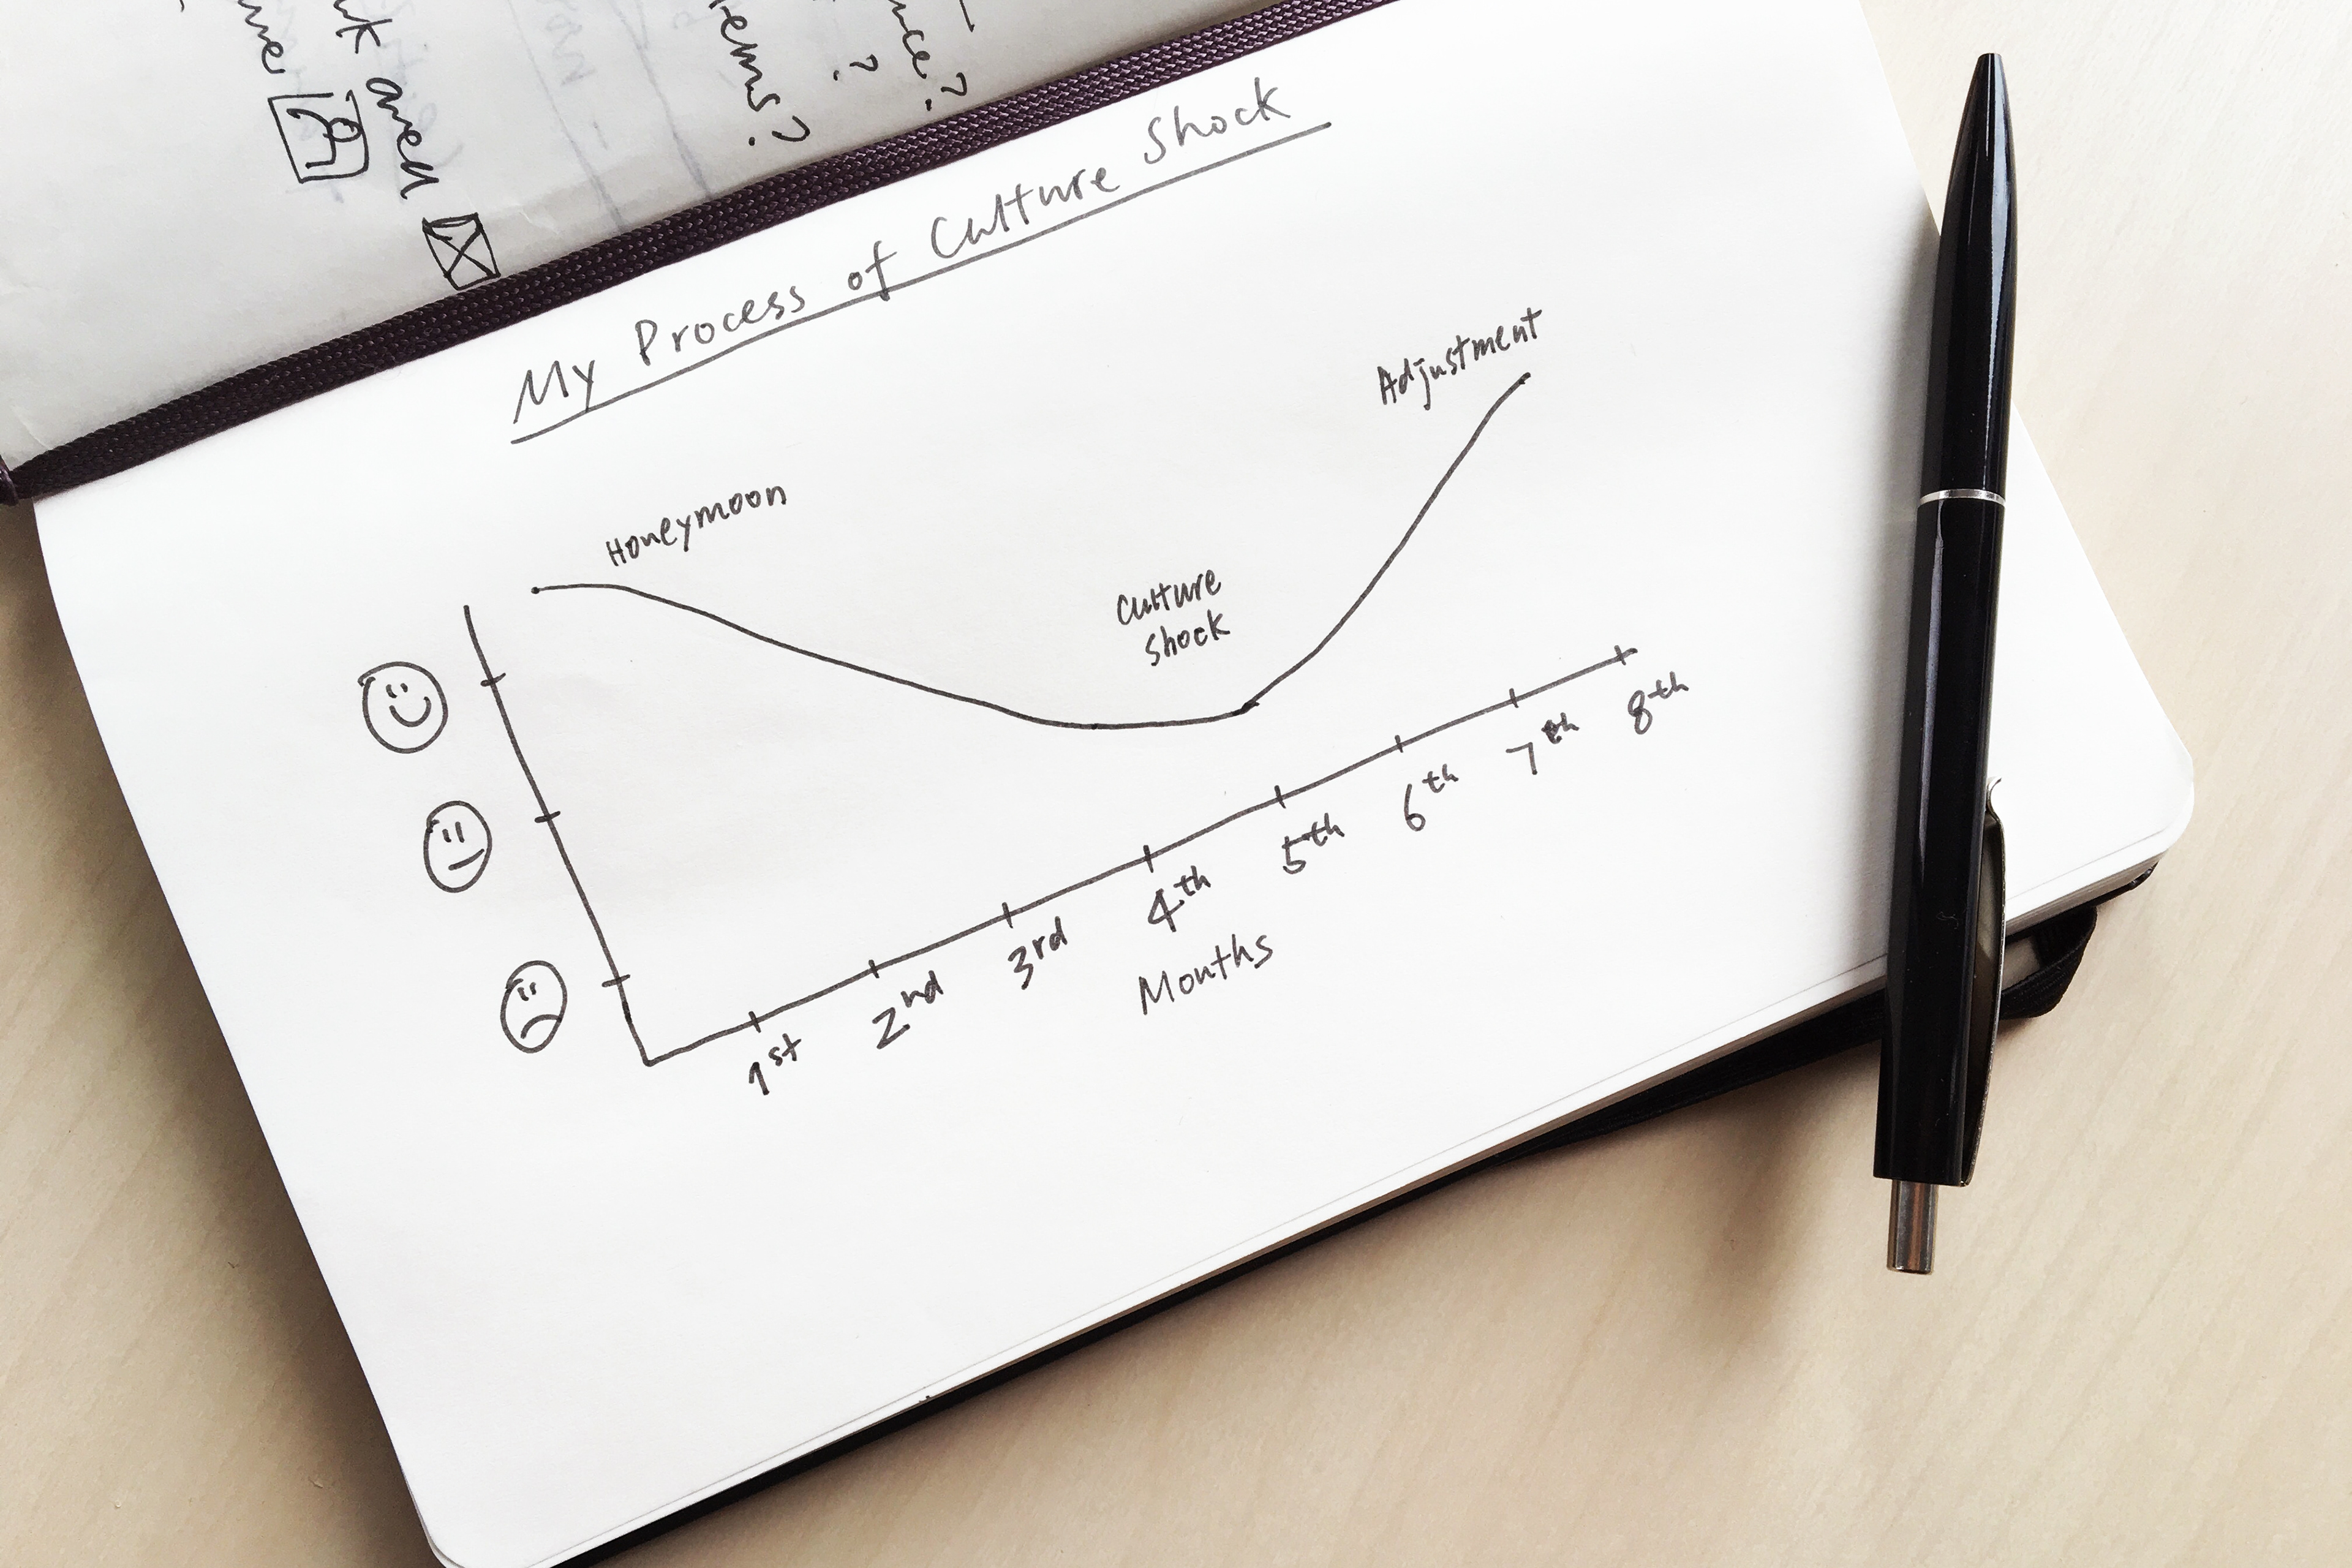 My Process of Culture Shock
Honeymoon
Culture
Shock
Adjustment
1st
2nd
3rd
4th
5th
6th
7th
8th
Months